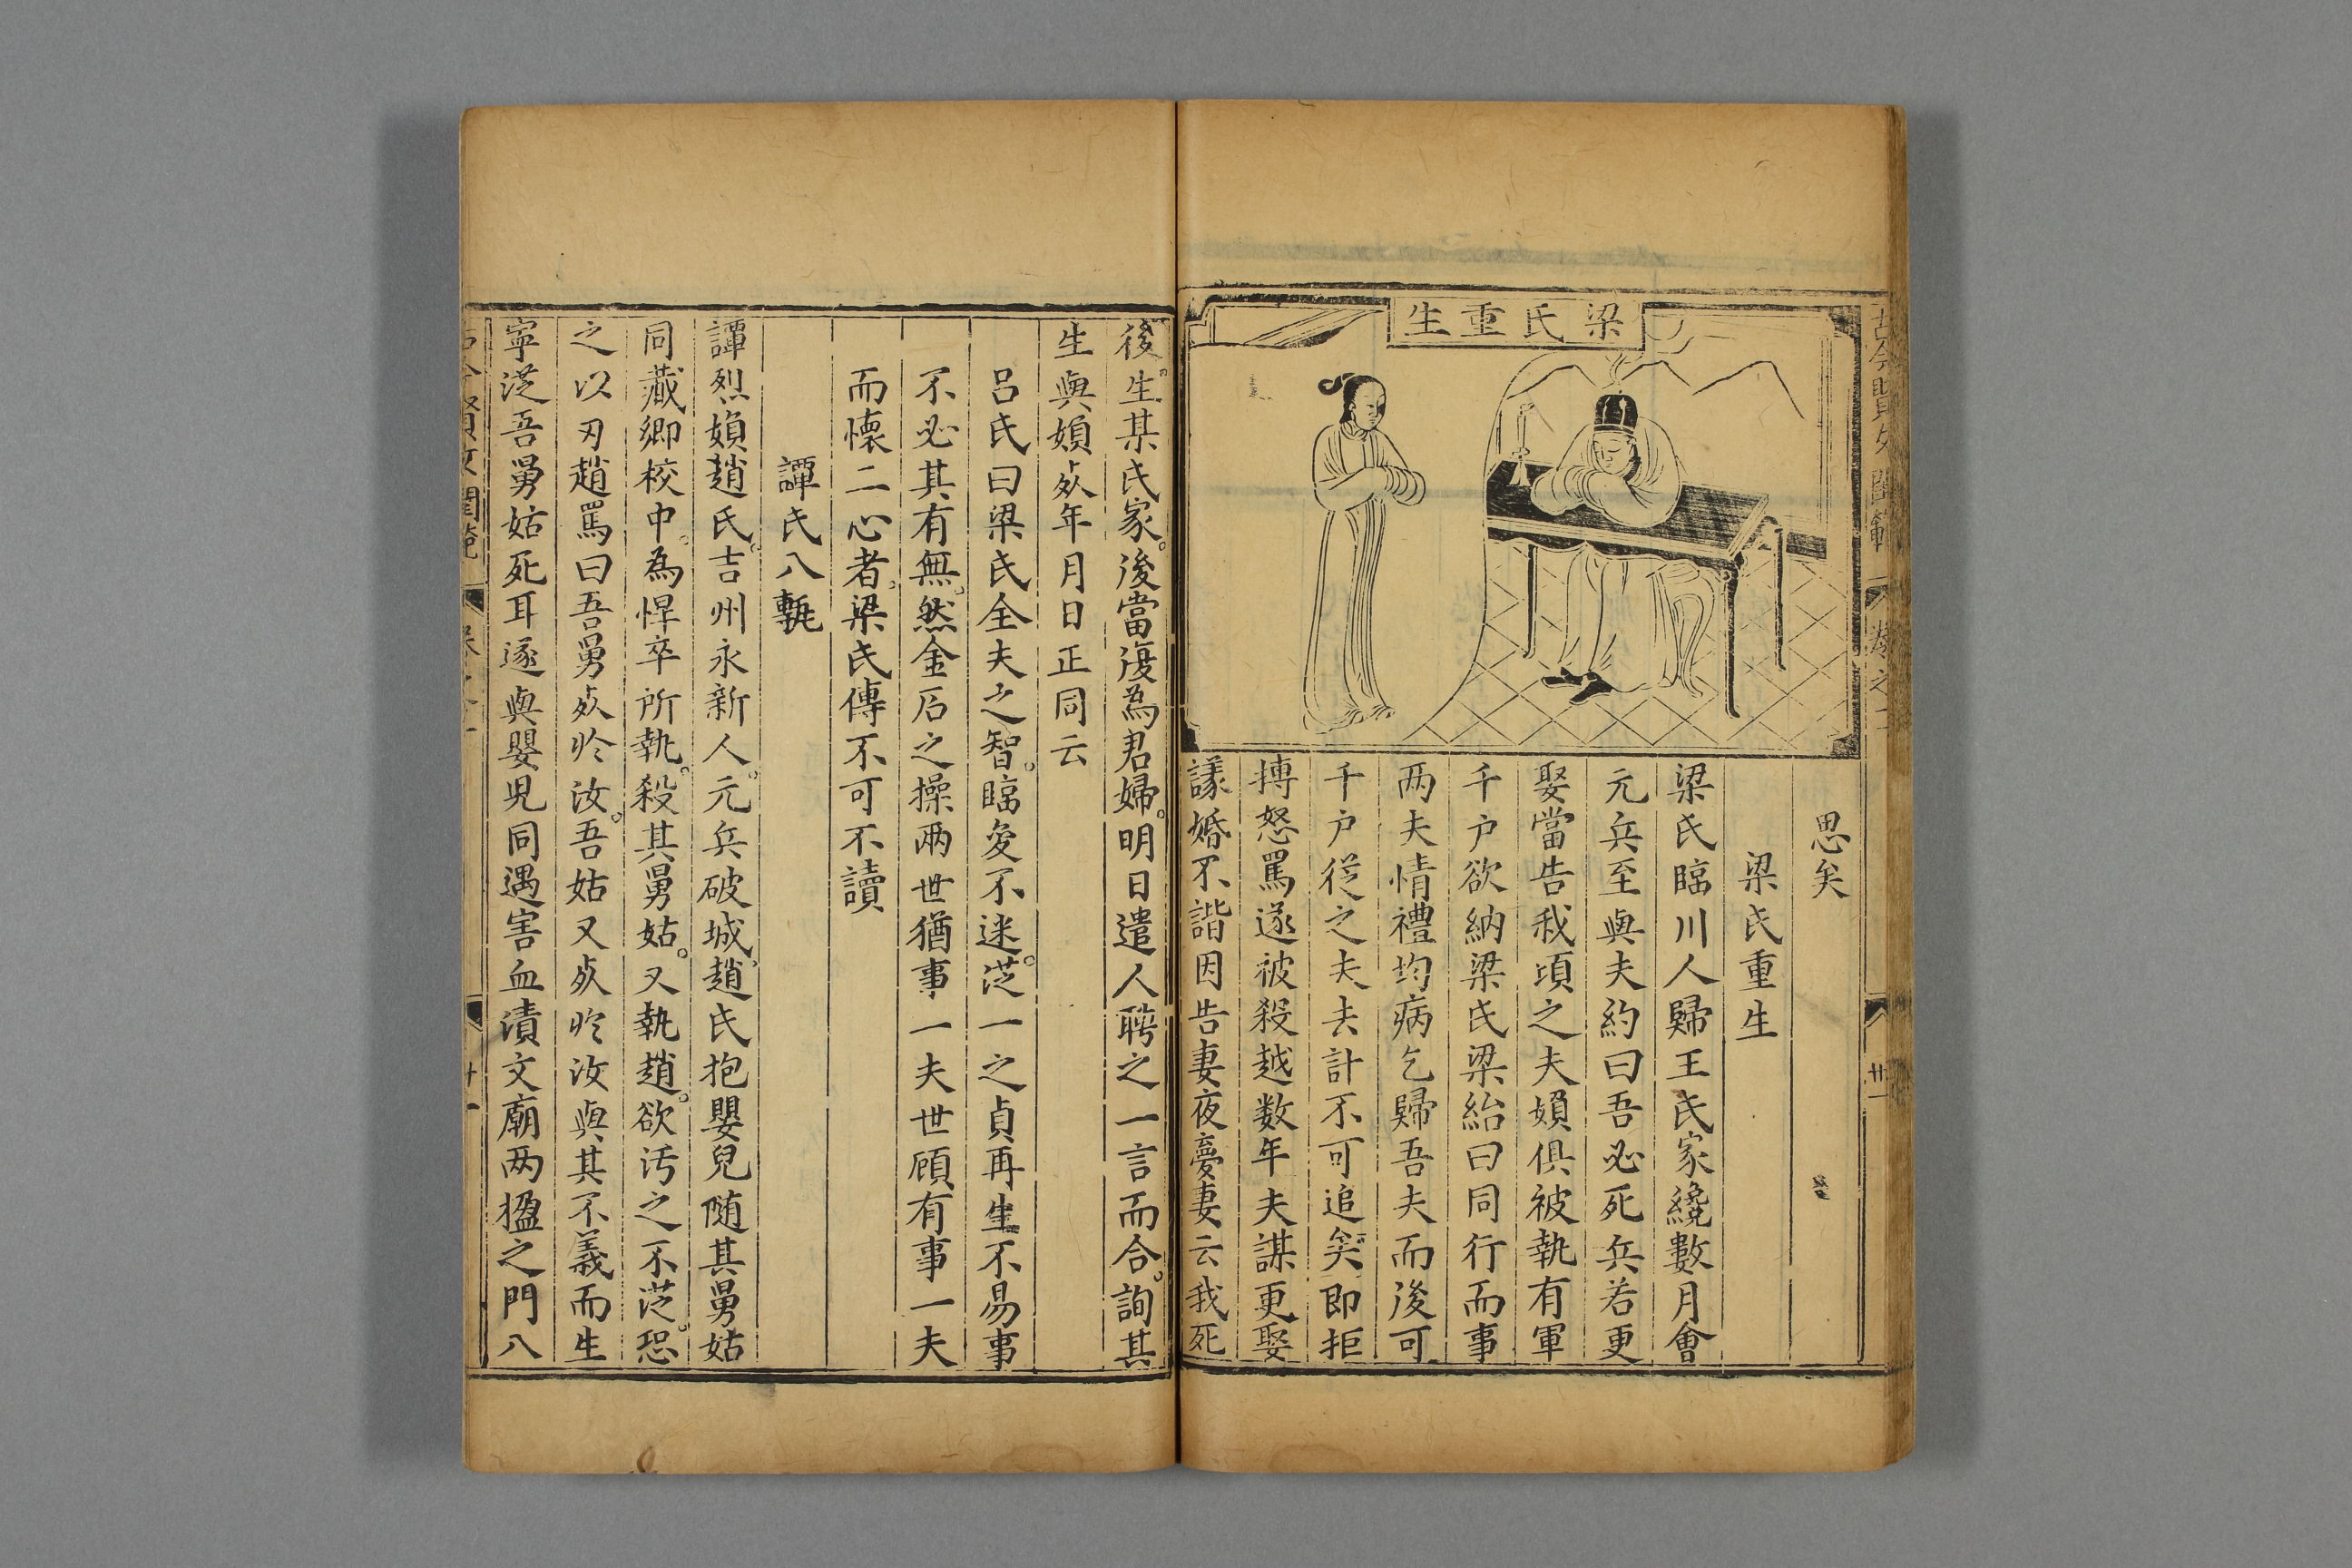 梁氏重生
思矣
梁氏重生
梁氏臨川人歸王氏家纔數月會
元兵至與夫約曰吾必死兵若更
娶當告我頃之夫婦俱被執有軍
千户欲納梁氏梁紿曰同行而事
两夫情禮均病乞歸吾夫而後可
千户從之夫去計不可追矣即拒
搏怒罵遂被殺越数年夫謀更娶
議婚不諧因告妻夜夢妻云我死
後。生某氏家。後當復為君婦。明日遣人聘之一言而合。詢其
生與婦死年月日正同云
呂氏曰梁氏全夫之智。臨變不迷。從一之貞再生不易事
不必其有無。然金石之操兩世猶事一夫世顧有事一夫
而懷二心者。梁氏傳不可不讀
譚氏八甎
譚烈婦趙氏。吉州永新人。元兵破城。趙氏抱嬰兒随其舅姑
同藏鄉校中。為悍卒所執。殺其舅姑。又執趙。欲污之不從。恐
之以刃趙罵曰吾舅死於汝。吾姑又死於汝與其不義而生
寧從吾舅姑死耳遂與嬰児同遇害血漬文廟两楹之門八